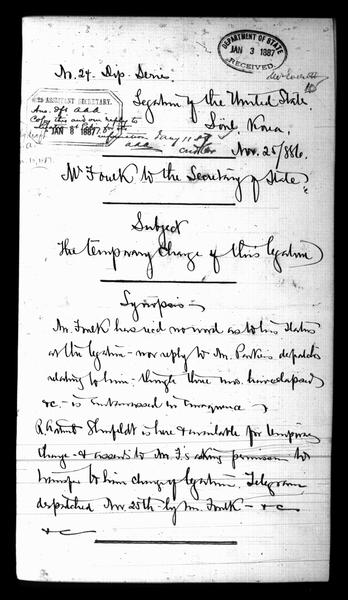 No. 24. Dip. Serie.
DEPARTMENT OF STATE
JAN 3 1887
RECEIVED
Legation of the United States
Söul, Korea,
Nov. 25/886.
ASSISTANT SECRETARY.
JAN 8 1887
Mr Foulk to the Secretary of State.
Subject
The temporary charge of this Legation
Synopsis
Mr. Foulk has recd no word as to his status
at the Legation - nor reply to Mr. Parker's despatch
relating to him - though three mos. have elapsed
&c. - is embarrassed in consequence
R. Admt Shufeldt is here & available for temporary
charge - & assents to Mr. F's asking permission to
transfer to him charge of Legation. Telegram
despatched Nov. 25th by Mr. Foulk - &c
&c